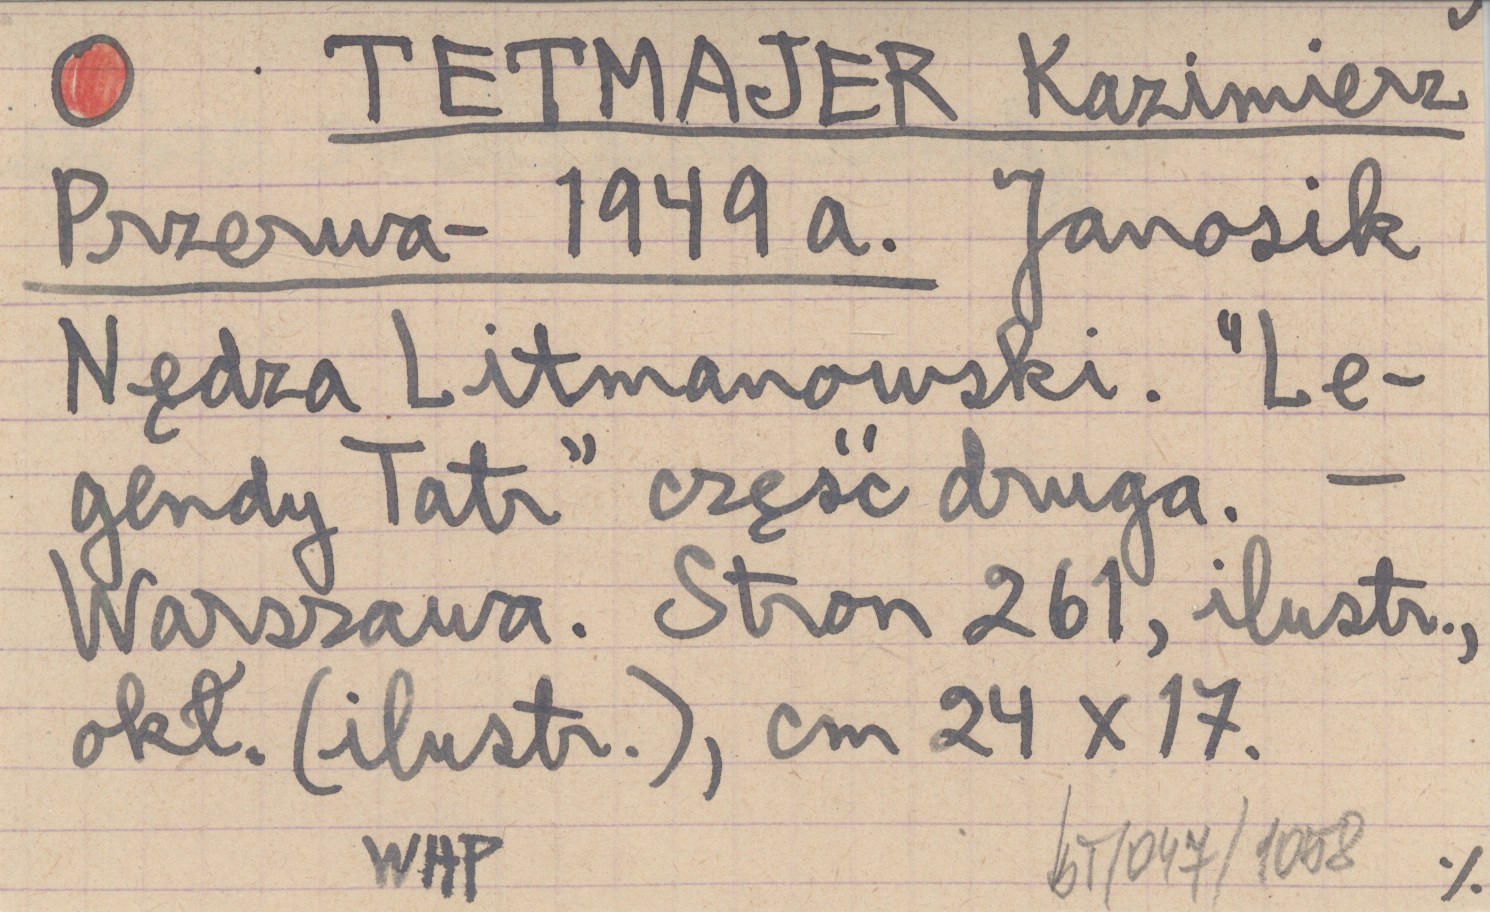 TETMAJER Kazimierz
Przerwa- 1949 a. Janosik
Nędza Litmanowski. "Le-
gendy Tatr" część druga. —
Warszawa. Stron 261, ilustr.,
okł. (ilustr.), cm 24 x 17.
WHP
bT/047/1058
%.